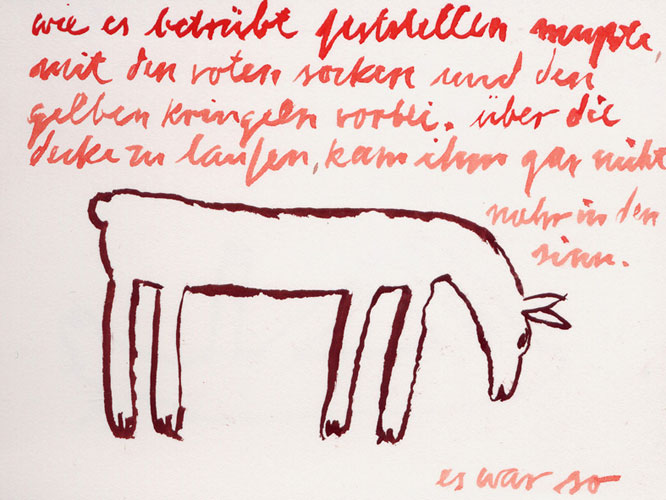 wie es betrübt feststellen mußte,
mit den roten socken und den
gelben kringeln vorbei. über die
decke zu laufen, kam ihm gar nicht
mehr in den
sinn.
es war so